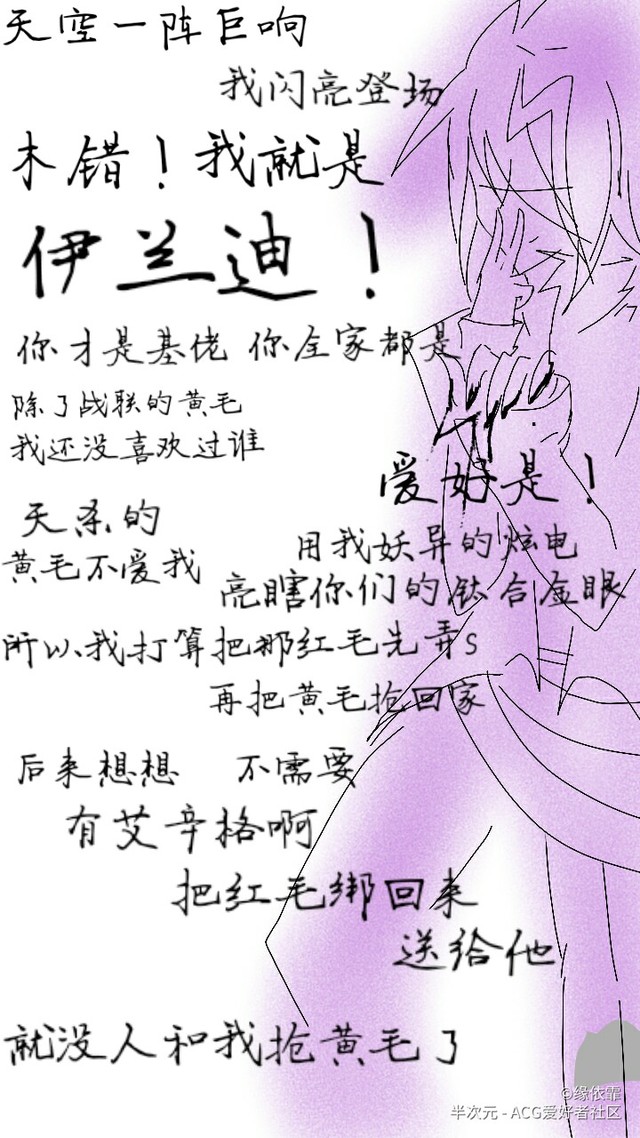 天空一阵巨响
我闪亮登场
木错！我就是
伊兰迪！
你才是基佬 你全家都是
除了战联的黄毛
我还没喜欢过谁
爱好是！
天杀的
黄毛不爱我
用我妖异的炫电
亮瞎你们的钛合金眼
所以我打算把那红毛先弄s
再把黄毛抢回家
后来想想 不需要
有艾辛格啊
把红毛绑回来
送给他
就没人和我抢黄毛了
©缘依霏
半次元 - ACG爱好者社区